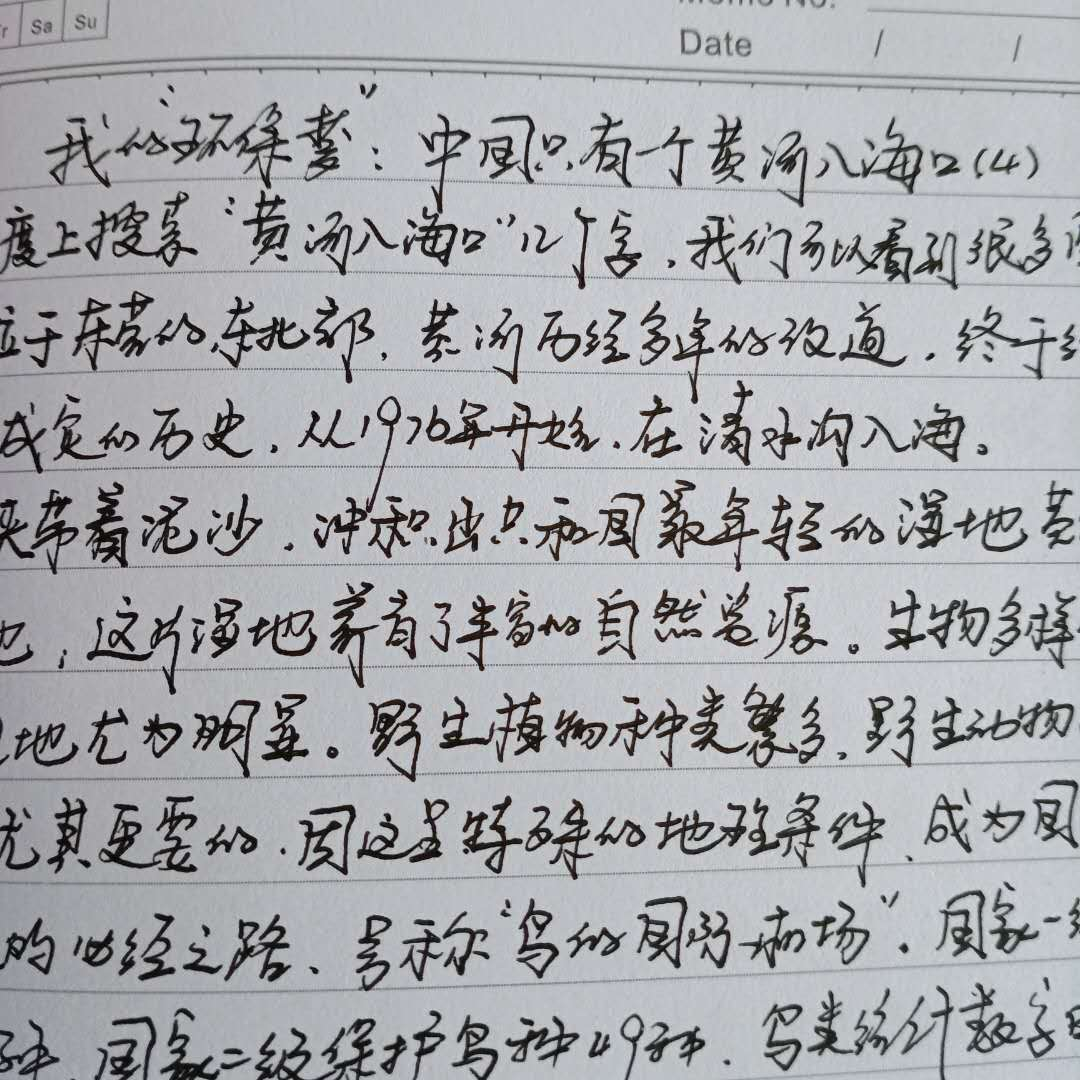 Sa Su
Memo No.
Date / /
我的“环保梦”：中国只有一个黄河入海口（4）
度上搜索“黄河入海口”几个字，我们可以看到很多
位于东营的东北部，黄河历经多年的改道，终于
成定的历史，从1976年开始，在清水沟入海。
夹带着泥沙，冲积出只和国最年轻的湿地黄
也，这片湿地养育了丰富的自然资源。生物多样
地尤为明显。野生植物种类繁多，野生动物
尤其更要的，因这是特殊的地理条件，成为国
的必经之路，号称“鸟的国际机场”。国家一级
种，国家二级保护鸟种49种，鸟类统计数字